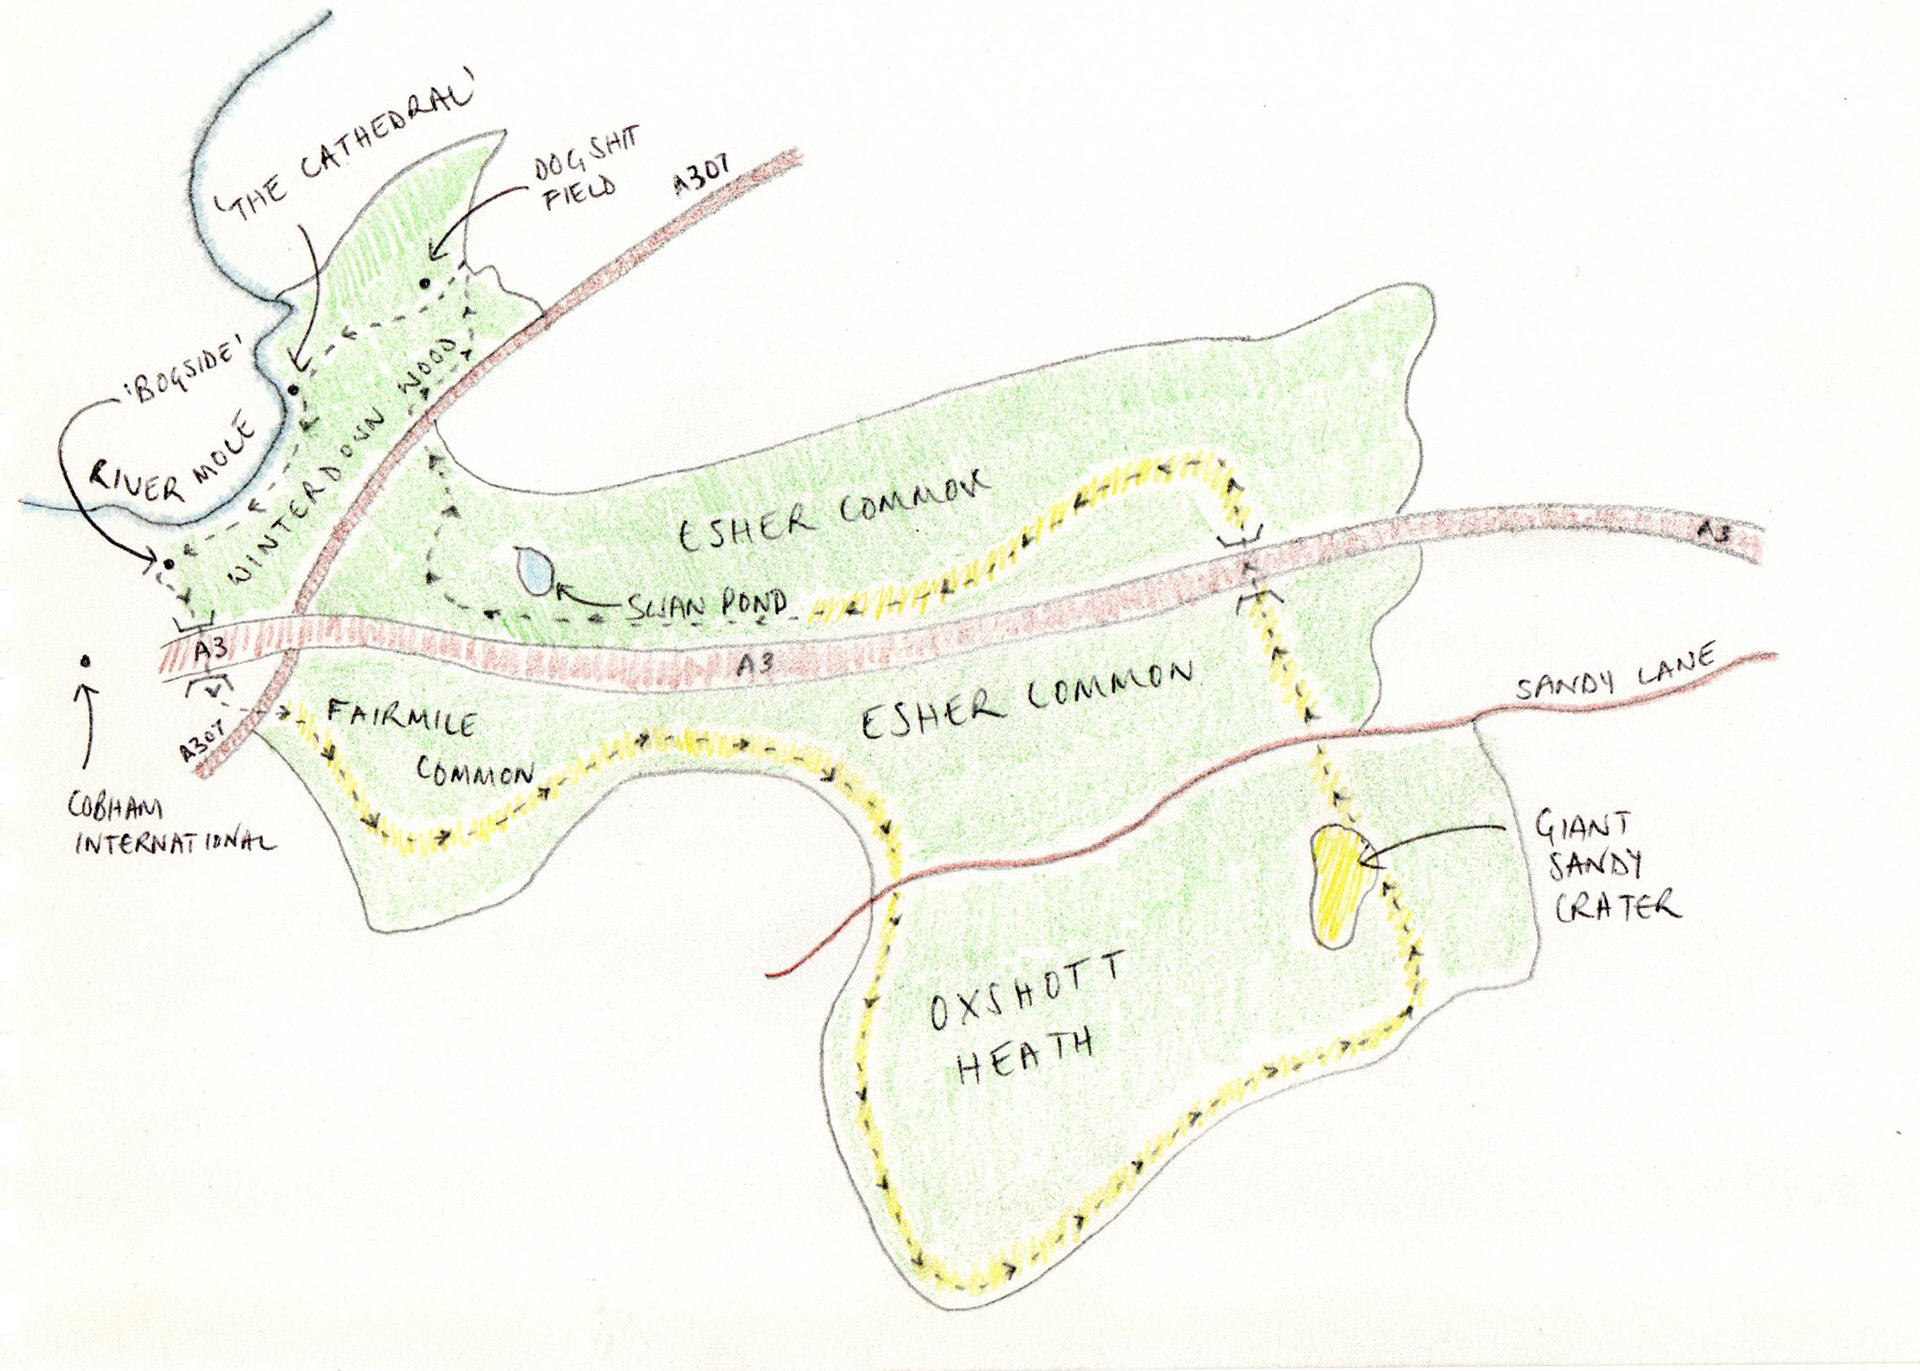 'THE CATHEDRAL'
DOGSHIT
FIELD
A307
'BOGSIDE'
RIVER MOLE
WINTERDOWN WOOD
ESHER COMMON
A3
SWAN POND
A3
A3
ESHER COMMON
SANDY LANE
FAIRMILE
COMMON
A307
COBHAM
INTERNATIONAL
GIANT
SANDY
CRATER
OXSHOTT
HEATH